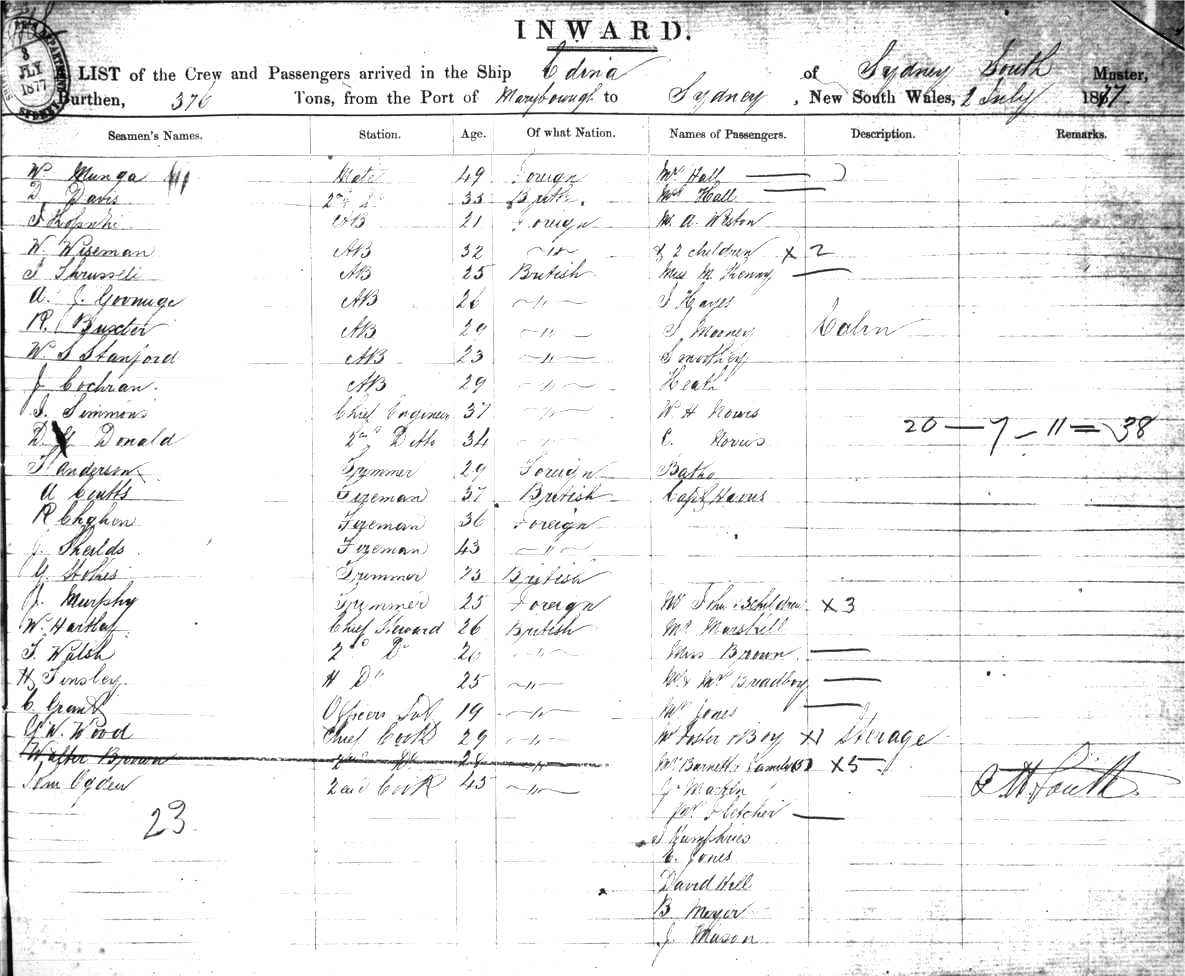 INWARD.
3 JLY 1877
LIST of the Crew and Passengers arrived in the Ship Edina of Sydney South Master,
Burthen, 376 Tons, from the Port of Maryborough to Sydney, New South Wales, 2 July 1877.
Seamen's Names. Station. Age. Of what Nation. Names of Passengers. Description. Remarks.
W Munga Mate 49 Foreign Mr Hall
D Davis 2nd Do 33 British Mrs Hall
AB 21 Foreign M. A. Weston
W Wiseman AB 32 〃 & 2 children x 2
AB 25 British Miss M. Kenny
A. J. AB 26 〃 J Hayes
R. Buxter AB 29 〃 J Mooney Cabin
W. S Stanford AB 23 〃
J Cochran. AB 29 〃 Heath
J. Simmons Chief Engineer 37 〃 W. H
D. Donald 2nd 34 〃 C. 20 — 7 — 11 = 38
T Anderson Trimmer 29 Foreign
A Coutts Fireman 37 British Capt
R Fireman 36 Foreign
J. Sheilds Fireman 43 〃
G. Stokes Trimmer 23 British
J. Murphy Trimmer 25 Foreign Mr 3 children x 3
W. Hartley Chief Steward 26 British Mr Marshell
T. Walsh 2nd Do 20 〃 Miss Brown
H Tinsley Do 25 〃 Mr & Mrs Bradboy
C. Grant Officers 19 〃 Mrs Jones
G. W. Wood Chief Cook 29 〃 Mr Foster & Boy x1 Sterage
Walter Brown 28 〃 Mrs Barnett & Family x5
Tom Ogden 2nd Cook 45 〃 J. Martin
23 Mrs Fletcher
J Humphries
E. Jones
David Hill
B. Meyer
J. Mason